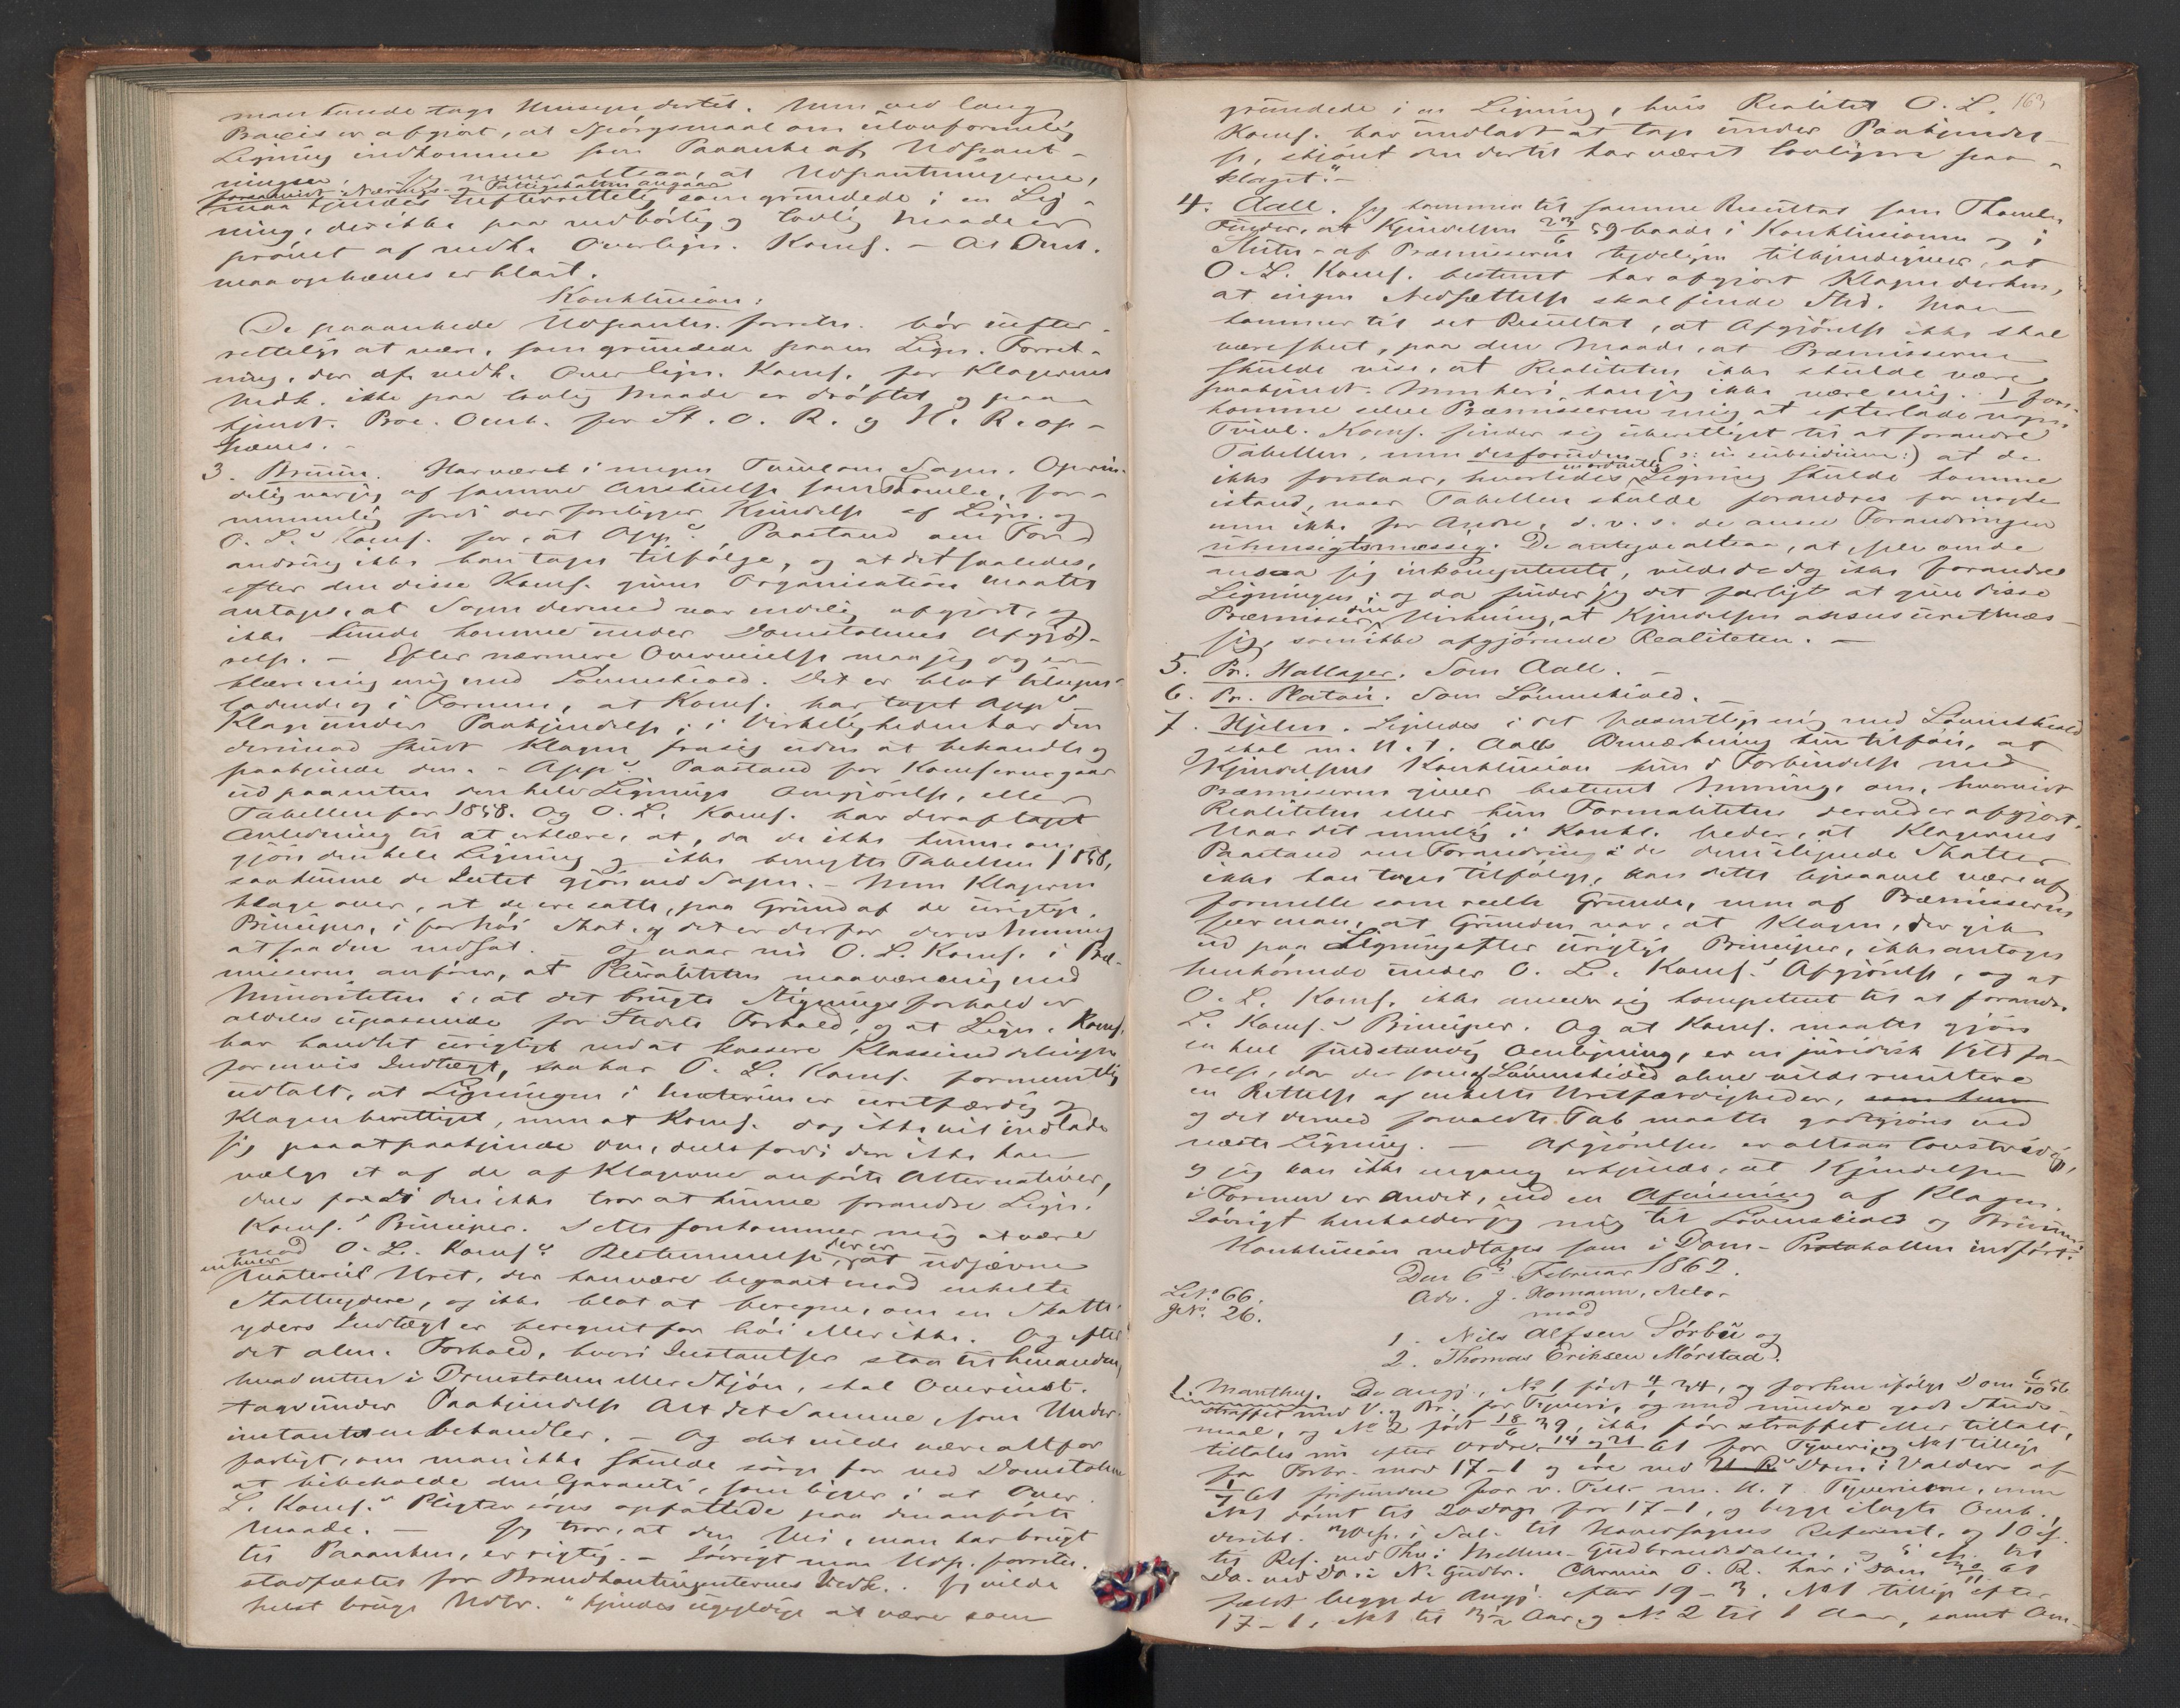 man kunde tage Hensyn dertil. Men ved lang
Praxis er afgjort, at Spörgsmaal om ulovformelig
Ligning indkomme som Paaanke af Udpant-
ningen. Jeg mener altsaa, at Udpantningerne,
forsaavidt Nærings- og Fattigskatten angaar
maa kjendes uefterrettelig som grundede i en Lig-
ning, der ikke paa nedbørlig og lovlig Maade er
prövet af vedk. Overlign. Koms. – At Omk.
maa ophæves er klart.
Konklusion:
De paaankede Udpantn. forretn. bör uefter-
rettelige at være, som grundede paa en Lign. Forret-
ning, der af vedk. Overlign. Koms. for Klagernes
Vedk. ikke paa lovlig Maade er dröftet og paa-
kjendt. Proc. Omk. for St. O. R. og H. R. op-
hæves. –
3. Bruun. Har været i megen Tvivl om Sagen. Oprin-
delig var jeg af samme Anskuelse som Thomle, for-
nemmelig fordi der foreligger Kjendelse af Lign. og
O. L. Koms. for, at App. Paastand om For-
andring ikke kan tages tilfölge, og at det saaledes,
efter den disse Koms. givne Organisation maatte
antages, at Sagen dermed var endelig afgjort, og
ikke kunde komme under Domstolenes Afgjö-
relse. – Efter nærmere Overveielse maa jeg dog er-
klære mig enig med Lövenskiold. Det er blot tilsyne-
ladende og i Formen, at Koms. har taget App.
Klage under Paakjendelse; i Virkeligheden har den
derimod skudt Klagen fra sig uden at behandle og
paakjende den. – App. Paastand for Komserne gaar
ud paa enten den hele Lignings Omgjörelse, eller
Tabellen for 1858. Og O. L. Koms. har deraf taget
Anledning til at erklære, at, da de ikke kunne om-
gjöre den hele Ligning og ikke benytte Tabellen 1858,
saa kunne de Intet gjöre ved Sagen. – Men Klagerne
klage over, at de ere satte, paa Grund af de urigtige
Principer, i for höi Skat, og det er derfor deres Mening
at faa den nedsat. – Og naar nu O. L. Koms. i Præ-
misserne anförer, at Pluraliteten maa være enig med
Minoriteten i, at det brugte Stigningsforhold er
aldeles upassende for Stedets Forhold, og at Lign. Koms.
har handlet urigtigt ved at kassere Klasseinddelingen
formuis Indtægt, saa har O. L. Koms. formentlig
udtalt, at Ligningen i Materien er uretfærdig og
Klagen berettiget, men at Koms. dog ikke vil indlade
sig paa at paakjende den, dels fordi den ikke kan
vælge et af de af Klagerne anförte Alternativer,
dels fordi den ikke tror at kunne forandre Lign.
Koms. Principer. Dette forekommer mig at være
mod O. L. Koms. Bestemmelse, der er at udjævne
enhver materiel Uret, der kan være begaaet mod enkelte
Skatteydere, og ikke blot at beregne, om en Skatte-
yders Indtægt er beregnet for höi eller ikke. Og efter
det alm. Forhold, hvori Instantser staa til hinanden,
hvad enten i Domstolen eller Skjön, skal Overinst.
tage under Paakjendelse Alt det Samme, som Under-
instantsen behandler. – Og det vilde være altfor
farligt, om man ikke skulde sörge for ved Domstolene
at bibeholde den Garanti, som ligger i at Over
L. Koms. Pligter siges opfattede paa den anförte
Maade. – Jeg tror, at den Vei, man har brugt
til Paaanken, er rigtig. – Iövrigt maa Udp. forretn.
stadfæstes for Brandkontingenternes Vedk. Jeg vilde
helst bruge Udtr. "kjendes ugyldige at være som
163
grundede i en Ligning, hvis Realitet O. L.
Koms. har undladt at tage under Paakjendel-
se, skjönt den dertil har været lovligen paa-
klaget." –
4. Aall. Jeg kommer til samme Resultat som Thomle.
Finder, at Kjendelsen 23/6 59 baade i Konklusionen og i
Slutn. af Præmisserne tydeligen tilkjendegiver, at
O. L. Koms. bestemt har afgjort Klagen derhen,
at ingen Nedsættelse skal finde Sted. Man
kommer til det Resultat, at Afgjörelse ikke skal
være skeet, paa den Maade, at Præmisserne
skulde vise, at Realiteten ikke skulde være
paakjendt. Men heri kan jeg ikke være enig. I for-
komme selve Præmisserne mig at efterlade nogen
Tvivl. Koms. finder sig uberettiget til at forandre
Tabellen, men desforuden (ɔ: in subsidium:) at de
ikke forstaar, hvorledes en ordentlig Ligning skulde komme
istand, naar Tabellen skulde forandres for nogle
men ikke for Andre, d. v. s. de anser Forandringen
uhensigtsmæssig. De antyde altsaa, at, selv om de
ansaa sig inkompetente, vilde de dog ikke forandre
Ligningen; og da finder jeg det farligt at give disse
Præmisser den Virkning, at Kjendelsen ansees uretmæs-
sig, som ikke afgjörende Realiteten. –
5. Pr. Hallager. Som Aall. –
6. Pr. Platou. Som Lövenskiold. –
7. Hjelm. Ligeledes i det Væsentlige enig med Lövenskiold
og skal m. H. t. Aalls Bemærkning kun tilföie, at
Kjendelsens Konklusion kun i Forbindelse med
Præmisserne giver bestemt Mening om, hvorvidt
Realiteten eller kun Formaliteten derved er afgjort.
Naar det nemlig i Konkl. heder, at Klagernes
Paastand om Forandring i de dem ilignede Skatter
ikke kan tages tilfölge, kan dette ligesaavel være af
formelle som reelle Grunde, men af Præmisserne
seer man, at Grunden var, at Klagen, der gik
ud paa Ligning efter urigtige Principer, ikke antoges
henhörende under O. L. Koms. Afgjörelse, og at
O. L. Koms. ikke ansaa sig kompetent til at forandre
L. Koms. Principer. Og at Koms. maatte gjöre
en heel fuldstændig Omligning, er en juridisk Vildfa-
relse, da der som af Lövenskiold ohne vilde resultere
en Rettelse af enkelte Uretfærdigheder, som kun
og det derved forvoldte Tab maatte godtgjöres ved
næste Ligning. – Afgjörelsen er altsaa lovstridig,
og jeg kan ikke engang erkjende, at Kjendelsen
i Formen er Andet, end en Afvisning af Klagen.
Iövrigt henholder jeg mig til Lövenskiold og Bruun.
Konklusion vedtages som i Dom-Protokollen indfört.
Den 6te Februar 1862.
L. No 66.
J. No 26.
Adv. J. Homann, Aktor
mod
1. Nils Alfsen Sörbü og
2. Thomas Eriksen Mörstad.
1. Manthey. De angj., No 1 födt 4/1 34, og forhen ifölge Dom 6/10 56
straffet med V. og Br. for Tyveri, og med mindre godt Skuds-
maal, og No 2 födt 18/6 39, ikke för straffet eller tiltalt,
tiltales nu efter Ordre 14 og 21 61 for Tyveri, og No 1 tillige
for Forbr. mod 17–1 og ere ved U. R. Dom i Valders af
1/7 61 frifundne for v. Tilt. m. H. t. Tyverierne, men
No 1 dömt til for 17–1, og begge ilagte Omk.,
deribl. i Sal. til Haversagens Referent, og 10 sp.
til Ref. ved Thi. Mellem-Gudbrandsdalen, og til
Do. ved Do. i N. Gudbr. Chrania O. R. har i Dom 61
fældt begge de Angj. efter 19–3, No 1 tillige efter
17–1, No 1 til 3½ Aar og No 2 til 1 Aar, samt Om-